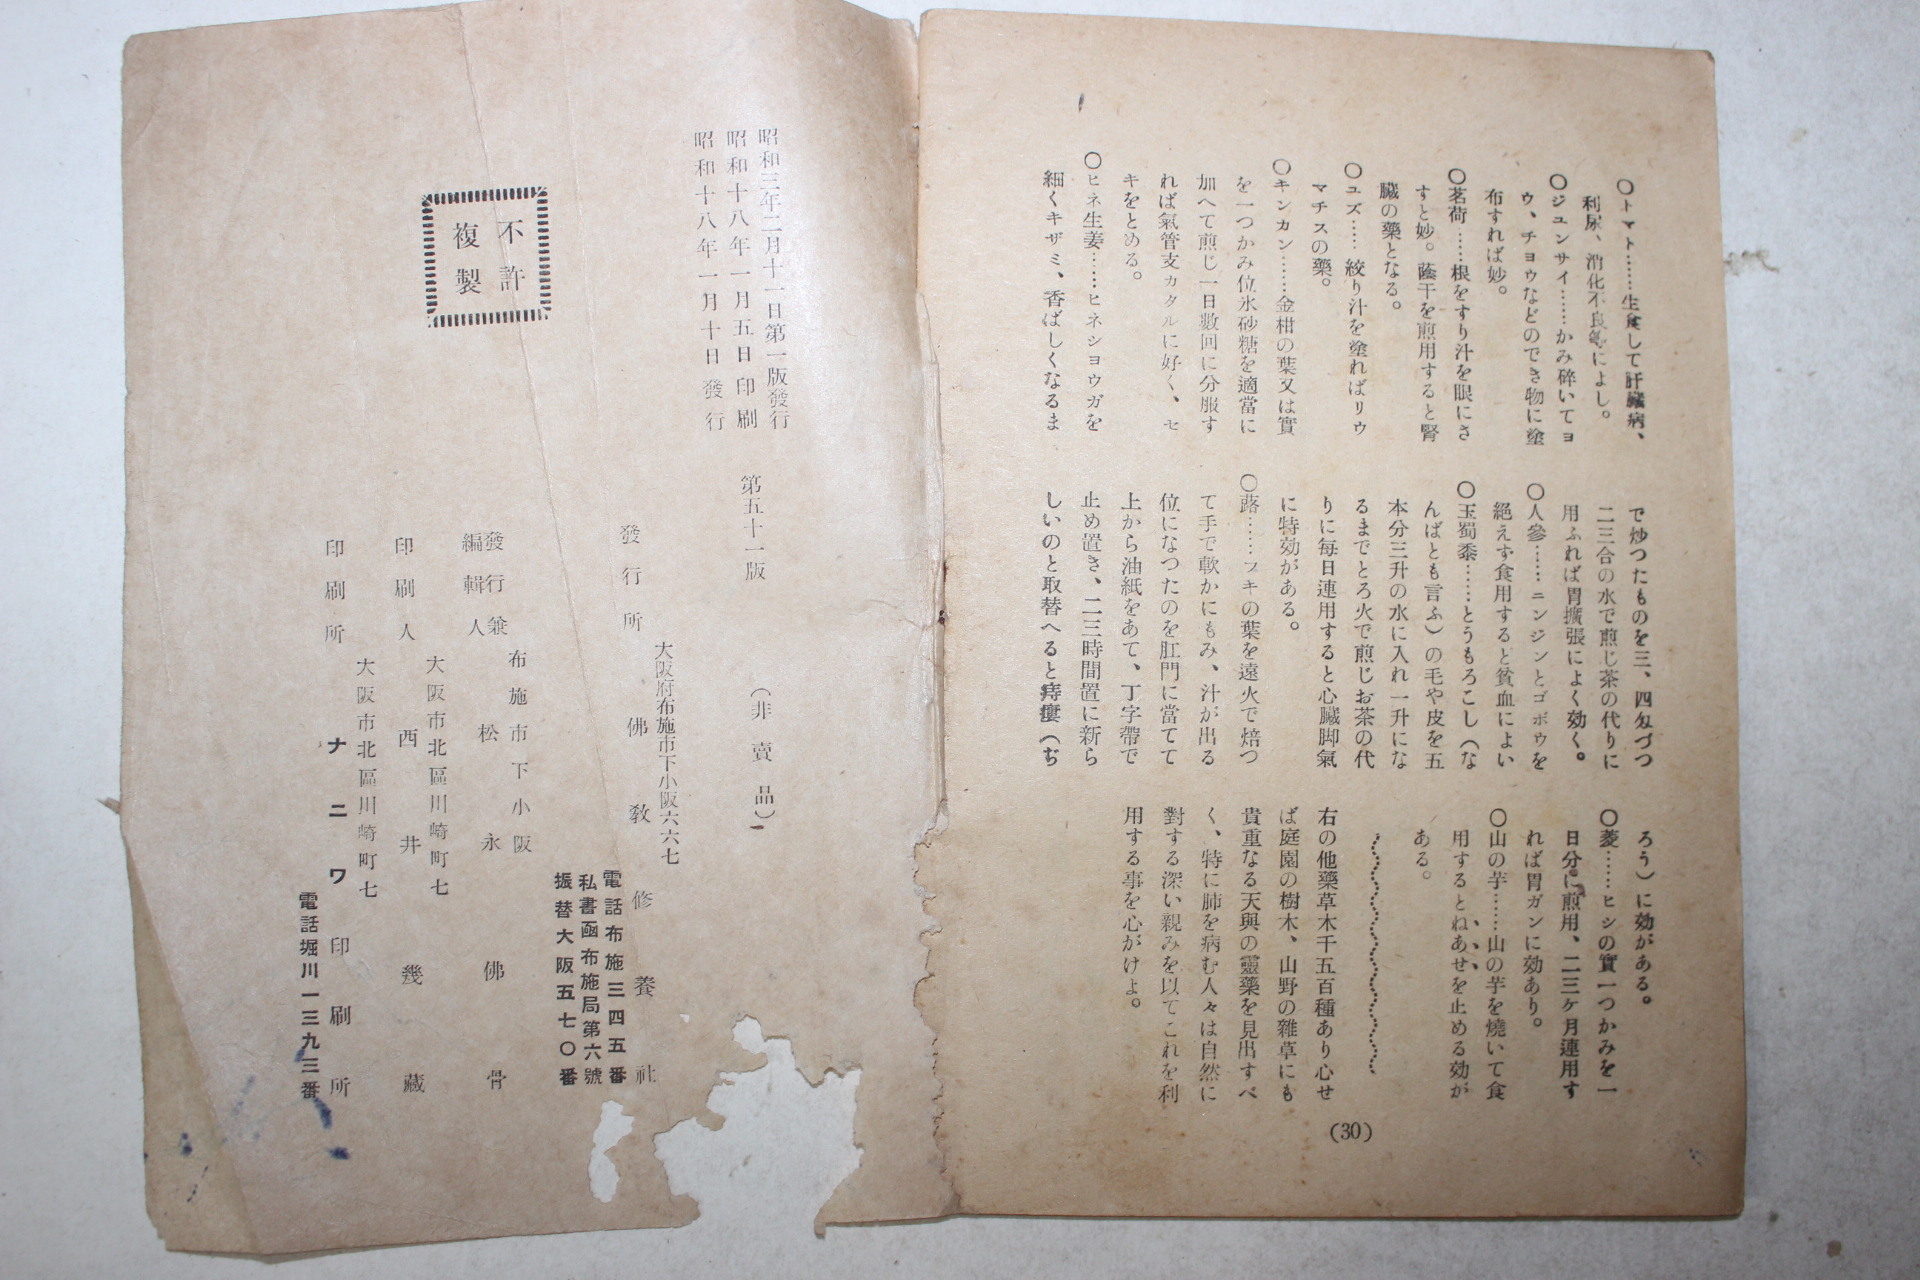 〇トマト……生食して肝臓病、
利尿、消化不良等によし。
〇ジュンサイ……かみ碎いてヨ
ウ、チョウなどのでき物に塗
布すれば妙。
〇茗荷……根をすり汁を眼にさ
すと妙。蔭干を煎用すると腎
臓の藥となる。
〇ユズ……絞り汁を塗ればリウ
マチスの藥。
〇キンカン……金柑の葉又は實
を一つかみ位氷砂糖を適當に
加へて煎じ一日數回に分服す
れば氣管支カタルに好く、セ
キをとめる。
〇ヒネ生姜……ヒネショウガを
細くキザミ、香ばしくなるま
で炒つたものを三、四匁づつ
二三合の水で煎じ茶の代りに
用ふれば胃擴張によく効く。
〇人參……ニンジンとゴボウを
絶えず食用すると貧血によい
〇玉蜀黍……とうもろこし（な
んばとも言ふ）の毛や皮を五
本分三升の水に入れ一升にな
るまでとろ火で煎じお茶の代
りに毎日連用すると心臓脚氣
に特効がある。
〇蕗……フキの葉を遠火で焙つ
て手で軟かにもみ、汁が出る
位になつたのを肛門に當てて
上から油紙をあて、丁字帶で
止め置き、二三時間置に新ら
しいのと取替へると痔瘻（ぢ
ろう）に効がある。
〇菱……ヒシの實一つかみを一
日分に煎用、二三ケ月連用す
れば胃ガンに効あり。
〇山の芋……山の芋を燒いて食
用するとねあせを止める効が
ある。
右の他藥草木千五百種あり心せ
ば庭園の樹木、山野の雜草にも
貴重なる天與の靈藥を見出すべ
く、特に肺を病む人々は自然に
對する深い親みを以てこれを利
用する事を心がけよ。
(30)
昭和三年二月十一日第一版發行
昭和十八年一月五日印刷
昭和十八年一月十日發行
第五十一版
（非賣品）
不許
複製
大阪府布施市下小阪六六七
發行所 佛教修養社
電話布施三四五番
私書函布施局第六號
振替大阪五七〇番
布施市下小阪
發行兼
編輯人 松永佛骨
大阪市北區川崎町七
印刷人 西井幾藏
大阪市北區川崎町七
印刷所 ナニワ印刷所
電話堀川一三九三番